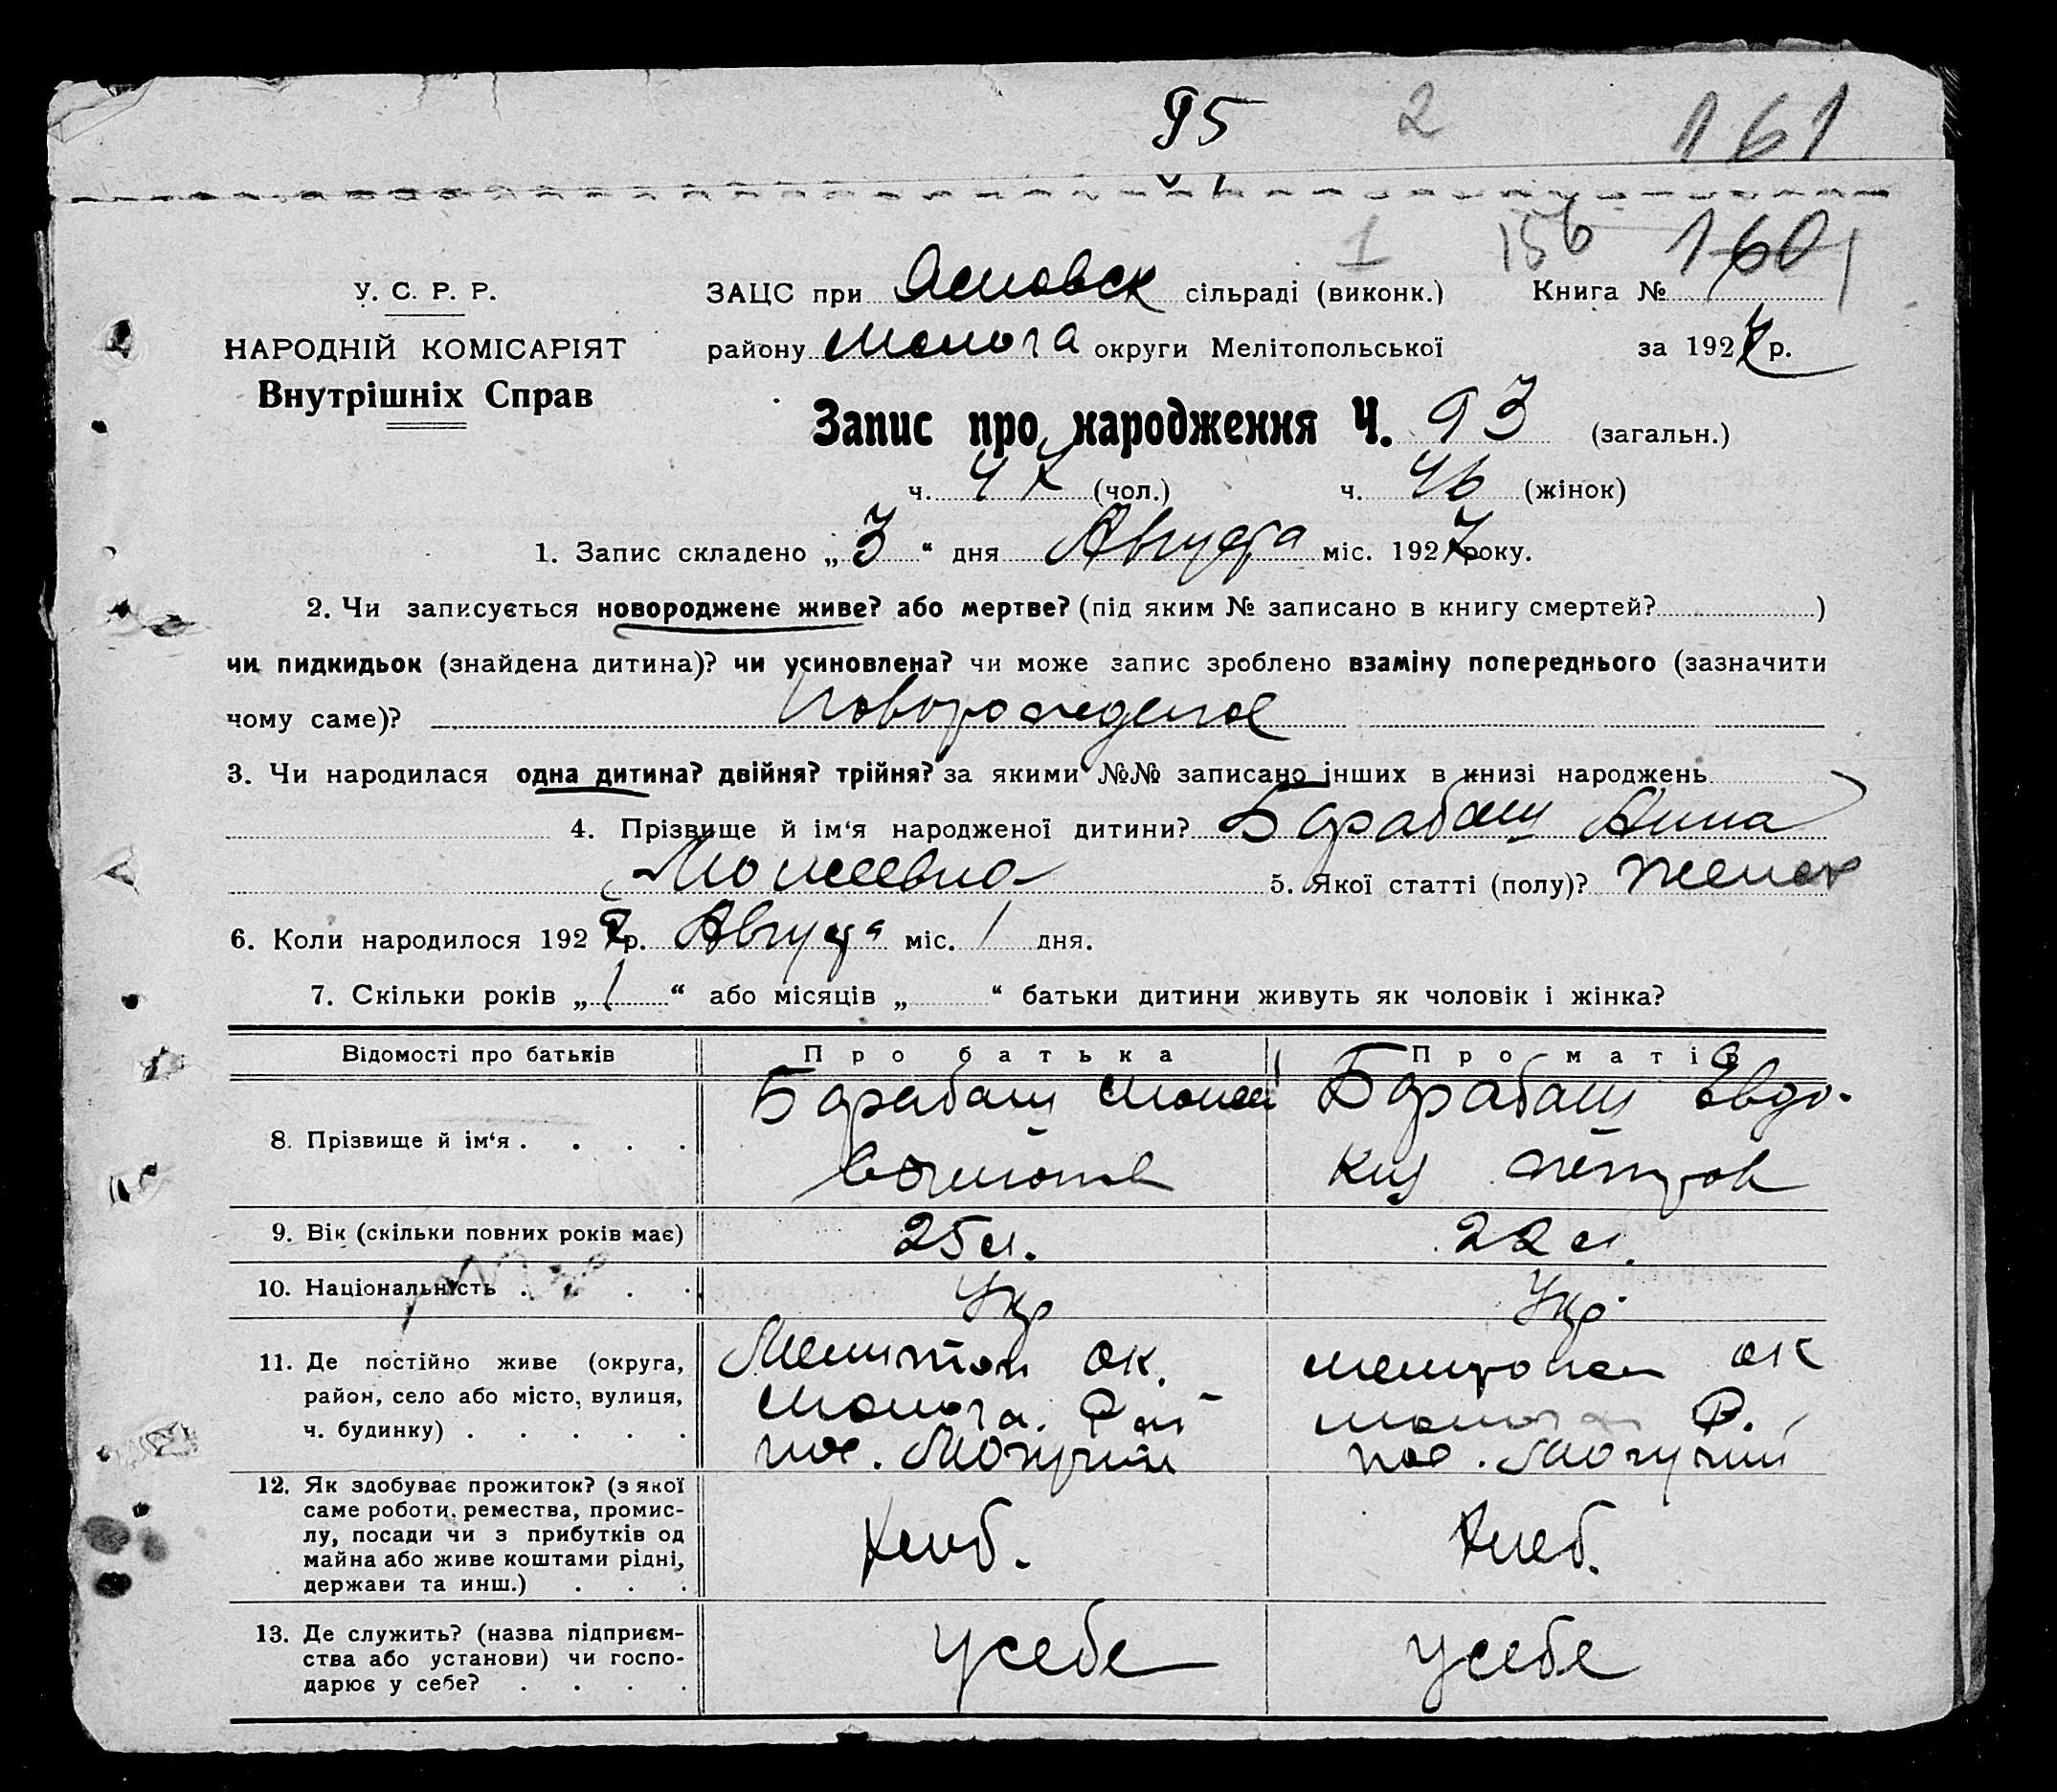 95 2 161
1 156 160
У. С. Р. Р. ЗАЦС при сільраді (виконк.) Книга №
НАРОДНІЙ КОМІСАРІЯТ району Молога округи Мелітопольської за 1927 р.
Внутрішніх Справ
Запис про народження Ч. 93 (загальн.)
ч. 47 (чол.) ч. 46 (жінок)
1. Запис складено „3“ дня Августа міс. 1927 року.
2. Чи записується новороджене живе? або мертве? (під яким № записано в книгу смертей? )
чи пидкидьок (знайдена дитина)? чи усиновлена? чи може запис зроблено взаміну попереднього (зазначити
чому саме)? Новорожденое
3. Чи народилася одна дитина? двійня? трійня? за якими №№ записано інших в книзі народжень
4. Прізвище й ім‘я народженої дитини? Барабаш Анна
Мойсеевна 5. Якої статті (полу)? женск
6. Коли народилося 1927 р. Августа міс. 1 дня.
7. Скільки років „1“ або місяців „ “ батьки дитини живуть як чоловік і жінка?
Відомості про батьків Про батька Про матір
8. Прізвище й ім‘я . . . . Барабаш Моисей Барабаш Евдо-
кия Петров
9. Вік (скільки повних років має) 25 л. 22 л.
10. Національність . . . . Укр Укр.
11. Де постійно живе (округа, Мелитоп ок. Мелитопол ок
район, село або місто, вулиця, Молога. Рай Молога Р.
ч. будинку) . . . . . пос. Могучий пос. Могучий
12. Як здобуває прожиток? (з якої
саме роботи, ремества, промис-
лу, посади чи з прибутків од
майна або живе коштами рідні, Хлеб. Хлеб.
держави та инш.) . . .
13. Де служить? (назва підприєм-
ства або установи) чи госпо- у себе у себе
дарює у себе? . . . .